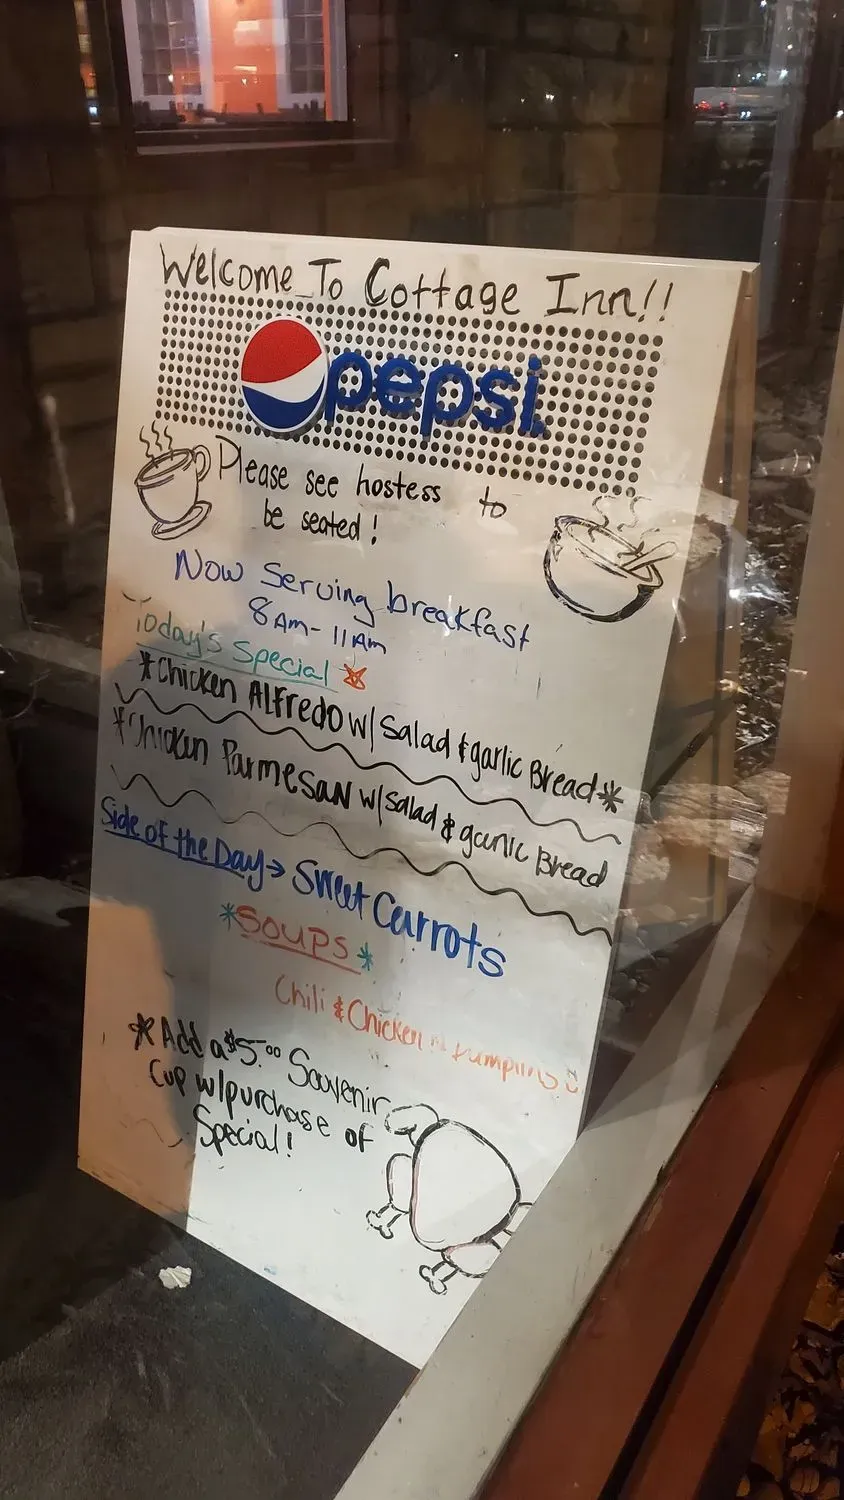 Welcome To Cottage Inn!!
pepsi
Please see hostess to
be seated!
Now Serving breakfast
8AM-11AM
Today's Special
*Chicken Alfredo w/ Salad & garlic Bread*
*Chicken Parmesan w/ Salad & garlic Bread
Side of the Day → Sweet Carrots
*SOUPS*
Chili & Chicken n Dumplins
*Add a $5.00 Souvenir
Cup w/purchase of
Special!